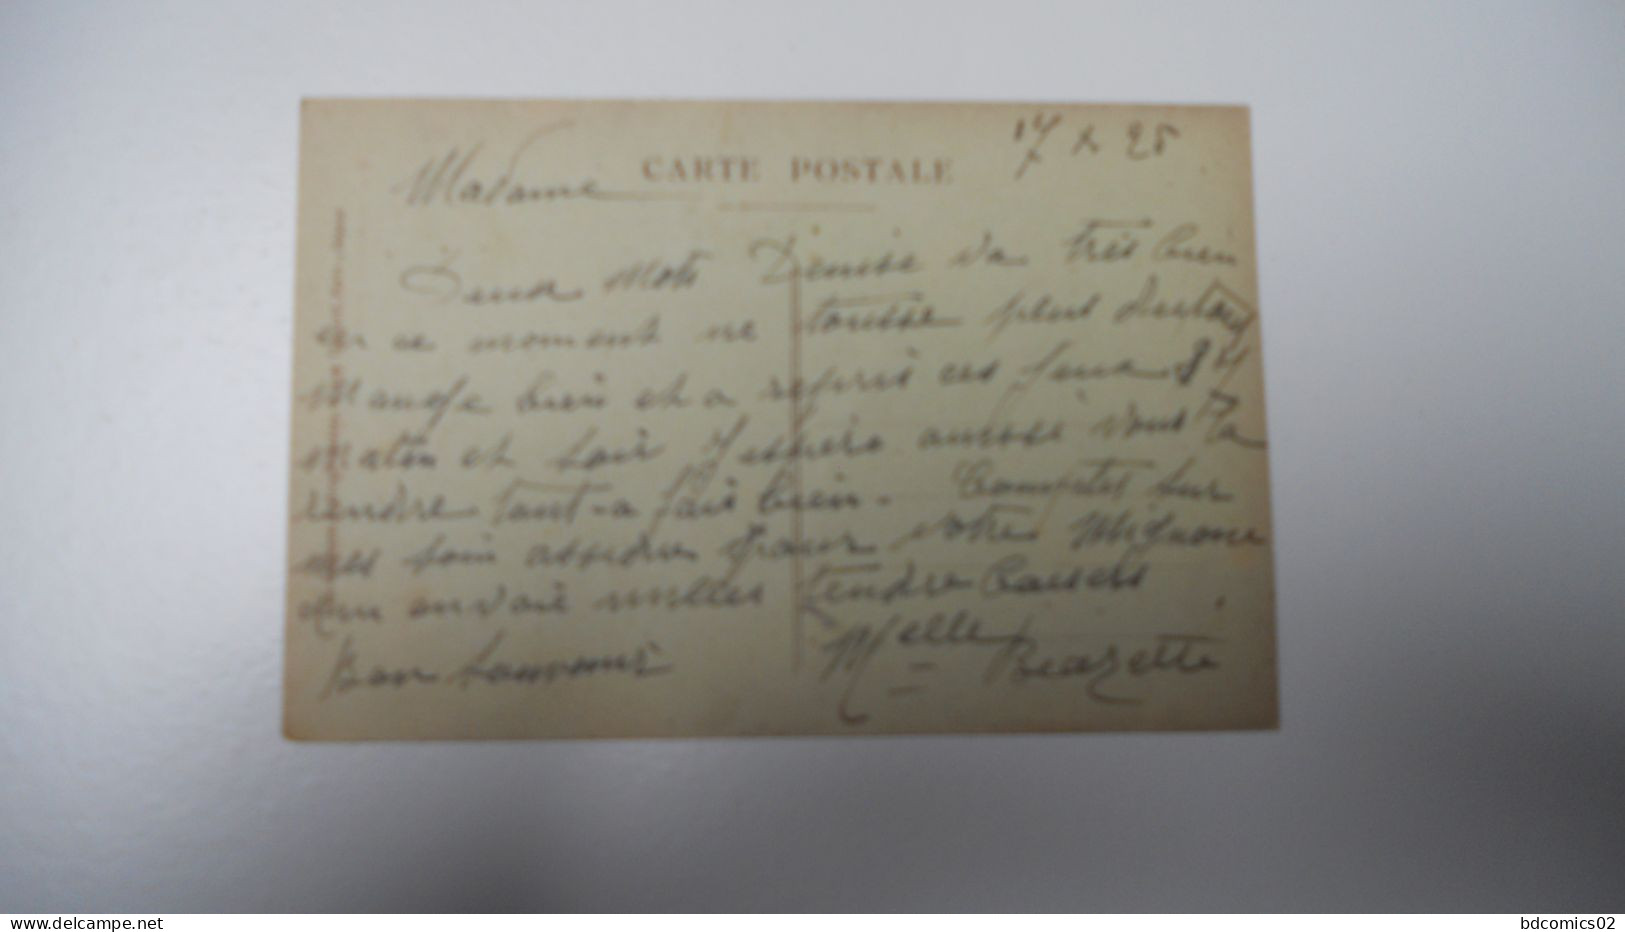 17 X 25
CARTE POSTALE
Madame
Deux Mots Denise va très bien
en ce moment ne tousse plus du tout
Mange bien et a repris ces
Matin et soir J'espère aussi vous la
rendre tout-a fais bien - Comptez sur
mes soin assidus pour votre Mignone
envoie milles tendre baisers
Bon Souvenir Melle
www.delcampe.net
bdcomics02